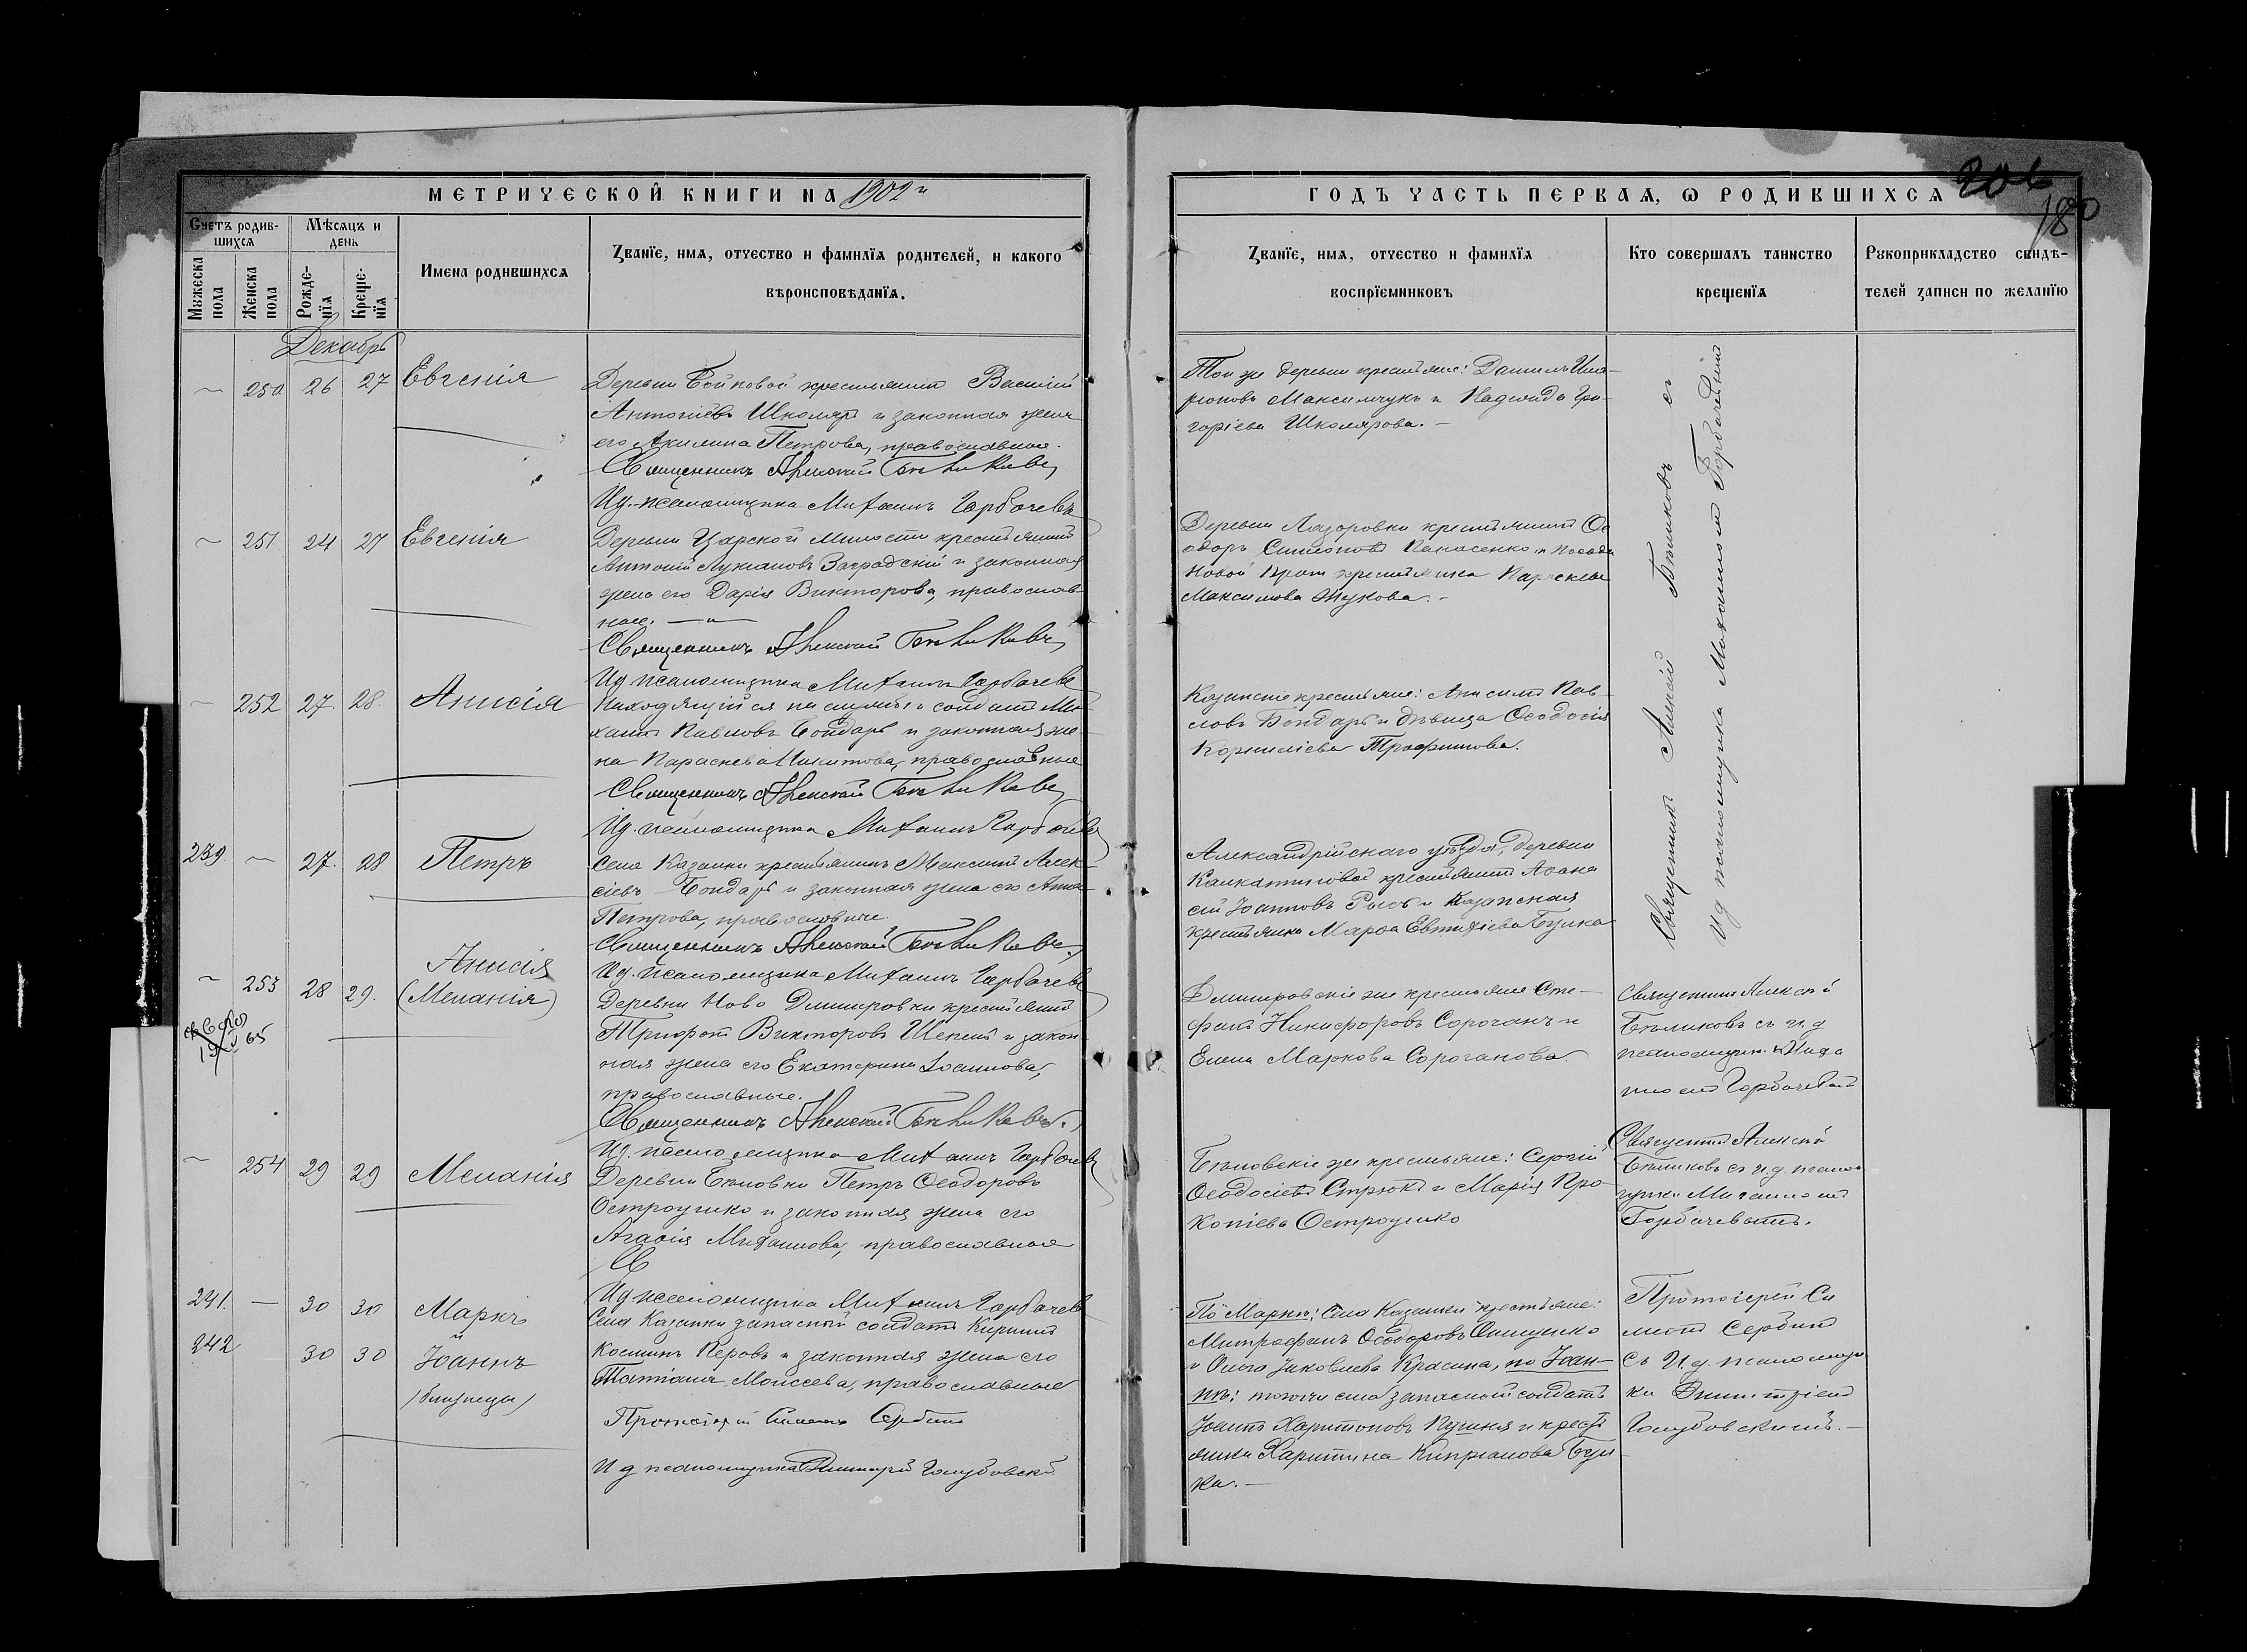 МЕТРИЧЕСКОЙ КНИГИ НА 1902 й
ГОДЪ ЧАСТЬ ПЕРВАЯ, Ѡ РОДИВШИХСЯ
206
180
Счетъ родив-
шихся
Мужеска пола
Женска пола
Мѣсяцъ и
день
Рожде-
нїя
Креще-
нїя
Имена родившихся
Званїе, имя, отчество и фамилїя родителей, и какого
вѣроисповѣданїя.
Званїе, имя, отчество и фамилїя
воспрїемниковъ
Кто совершалъ таинство
крещенїя
Рукоприкладство свидѣ-
телей записи по желанїю
Декабрь
250. 26 27 Евгенія
Деревни Бойковой крестьянинъ Василій
Антоніевъ Школяръ и законная жена
его Акилина Петрова, православные.
Священникъ Алексій Бѣликовъ
И.д. псаломщика Михаилъ Горбачевъ
Той же деревни крестьяне: Даніилъ Ила-
ріоновъ Максимчукъ и Надежда Гри-
горіева Школярова. –
251 24 27 Евгенія
Деревни Царской Милости крестьянинъ
Антоній Лукіановъ Заградскій и законная
жена его Дарія Викторова, православ
ные. — " —
Священникъ Алексій Бѣликовъ
И.д. псаломщика Михаилъ Горбачевъ
Деревни Лазоровки крестьянинъ Ѳе
одоръ Симоновъ Панасенко и посада
Новой Праги крестьянка Параскева
Максимова Жукова. –
252 27. 28. Анисія
Находящійся на службѣ солдатъ Ми-
хаилъ Павловъ Бондарь и законная же-
на Параскева Никитова, православные
Священникъ Алексій Бѣликовъ
И.д. псаломщика Михаилъ Горбачевъ
Казанскіе крестьяне: Анисимъ Пав-
ловъ Бондарь и дѣвица Ѳеодосія
Корниліева Трофимова.
239. – 27. 28 Петръ
Села Казанки крестьянинъ Максимъ Алек-
сіевъ Бондарь и законная жена его Анна
Петрова, православные
Священникъ Алексій Бѣликовъ
И.д. псаломщика Михаилъ Горбачевъ
Александрійскаго уѣзда, деревни
крестьянинъ Аѳана
сій Іоанновъ и Казанская
крестьянка Марѳа Евтихіева
Священникъ Алексій Бѣликовъ съ
И д псаломщика Михаиломъ Горбачевымъ
253 28 29. Анисія
(Меланія)
Деревни Ново Дмитровки крестьянинъ
Трифонъ Викторовъ и закон-
ная жена его Екатерина Іоаннова,
православные.
Священникъ Алексій Бѣликовъ.
И.д. псаломщика Михаилъ Горбачевъ
Дмитровскіе же крестьяне Сте-
фанъ Никифоровъ Сороганъ и
Елена Маркова Сороганова
Священникъ Алексій
Бѣликовъ съ и.д
псаломщика Миха
иломъ Горбачевымъ
254 29 29 Меланія
Деревни Бѣловки Петръ Ѳеодоровъ
Остроушко и законная жена его
Агаѳія Михаилова, православные
Св
И.д псаломщика Михаилъ Горбачевъ
Бѣловскіе же крестьяне: Сергій
Ѳеодосіевъ Стрюкъ и Марія Про-
копіева Остроушко
Священникъ Алексій
Бѣликовъ съ и.д. псалом
щика Михаиломъ
Горбачевымъ.
241. — 30 30 Маркъ
и
242 30 30 Іоаннъ
(близнецы)
Села Казанки запасный солдатъ Кириллъ
Косминъ Перовъ и законная жена его
Татіана Моисеева, православные
Протоіерей Симеонъ Сербинъ
И д псаломщика Димитрій Голубовскій
По Маркѣ: Села Казанки крестьяне:
Митрофанъ Ѳеодоровъ Онищенко
и Ольга Іаковлева Красина, по Іоан-
нѣ: того же села запасный солдатъ
Іоаннъ Харитоновъ и кресть
янка Харитина Кипріанова
ка. —
Протоіерей Си
меонъ Сербинъ
съ И.д. псаломщи
ка Димитріемъ
Голубовскимъ. –